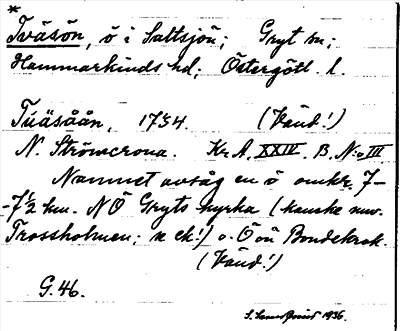 *
Tväsön, ö i Saltsjön; Gryt sn;
Hammarkinds hd; Östergötl. l.
Tuäsåån, 1734. (Vänd!)
N. Strömcrona. Kr. A. XXIV. B. No III
Namnet avsåg en ö omkr. 7-
-7½ km. NÖ Gryts kyrka (kanske nuv.
Trossholmen; n ek!) o. Ö om Bondekrok.
(Vänd!)
G. 46.
1936.